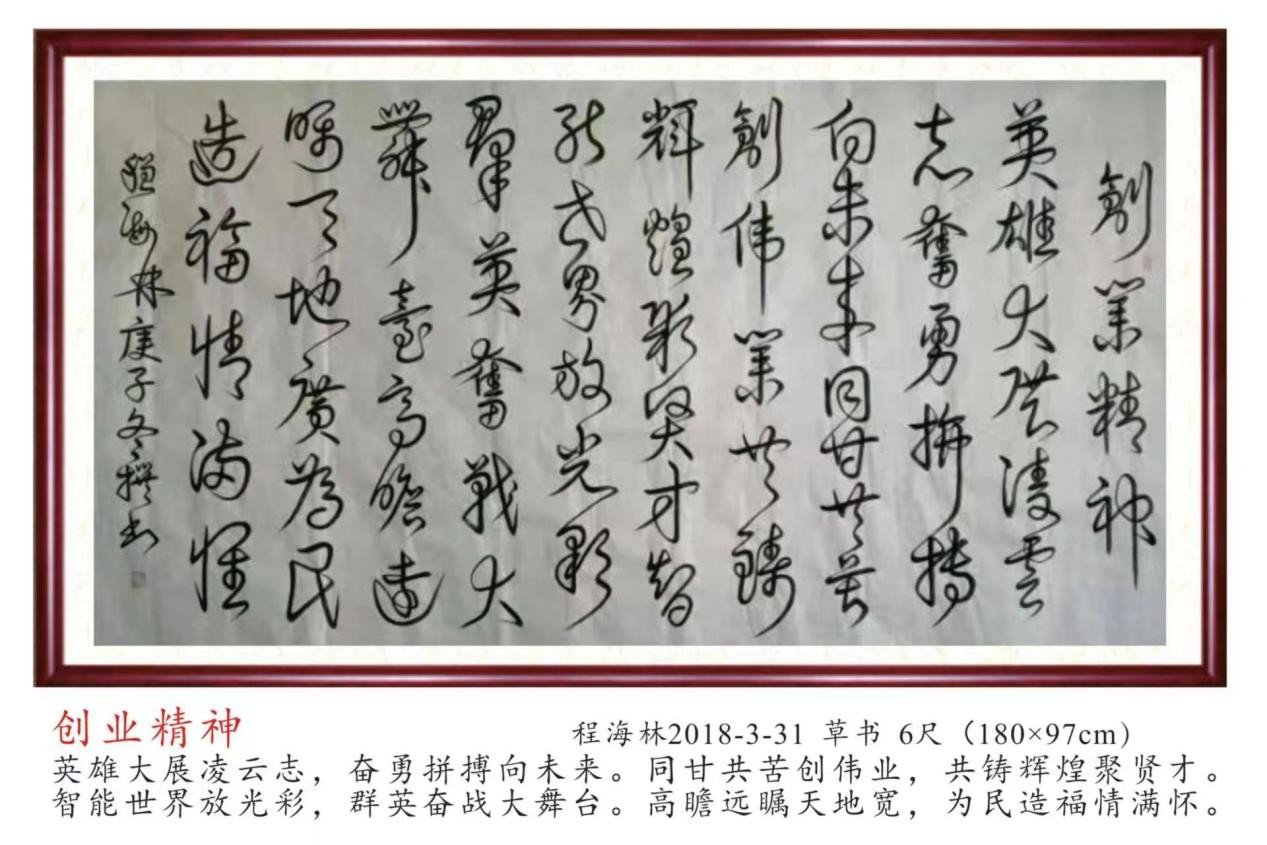 創業精神
英雄大展凌雲
志奮勇拼搏
向未来同甘共苦
創伟業共鑄
輝煌聚贤才智
能世界放光彩
羣英奮戰大
舞臺高瞻远
瞩天地廣為民
造福情满怀
程海林庚子冬撰书
创业精神
程海林2018-3-31 草书 6尺（180×97cm）
英雄大展凌云志，奋勇拼搏向未来。同甘共苦创伟业，共铸辉煌聚贤才。
智能世界放光彩，群英奋战大舞台。高瞻远瞩天地宽，为民造福情满怀。